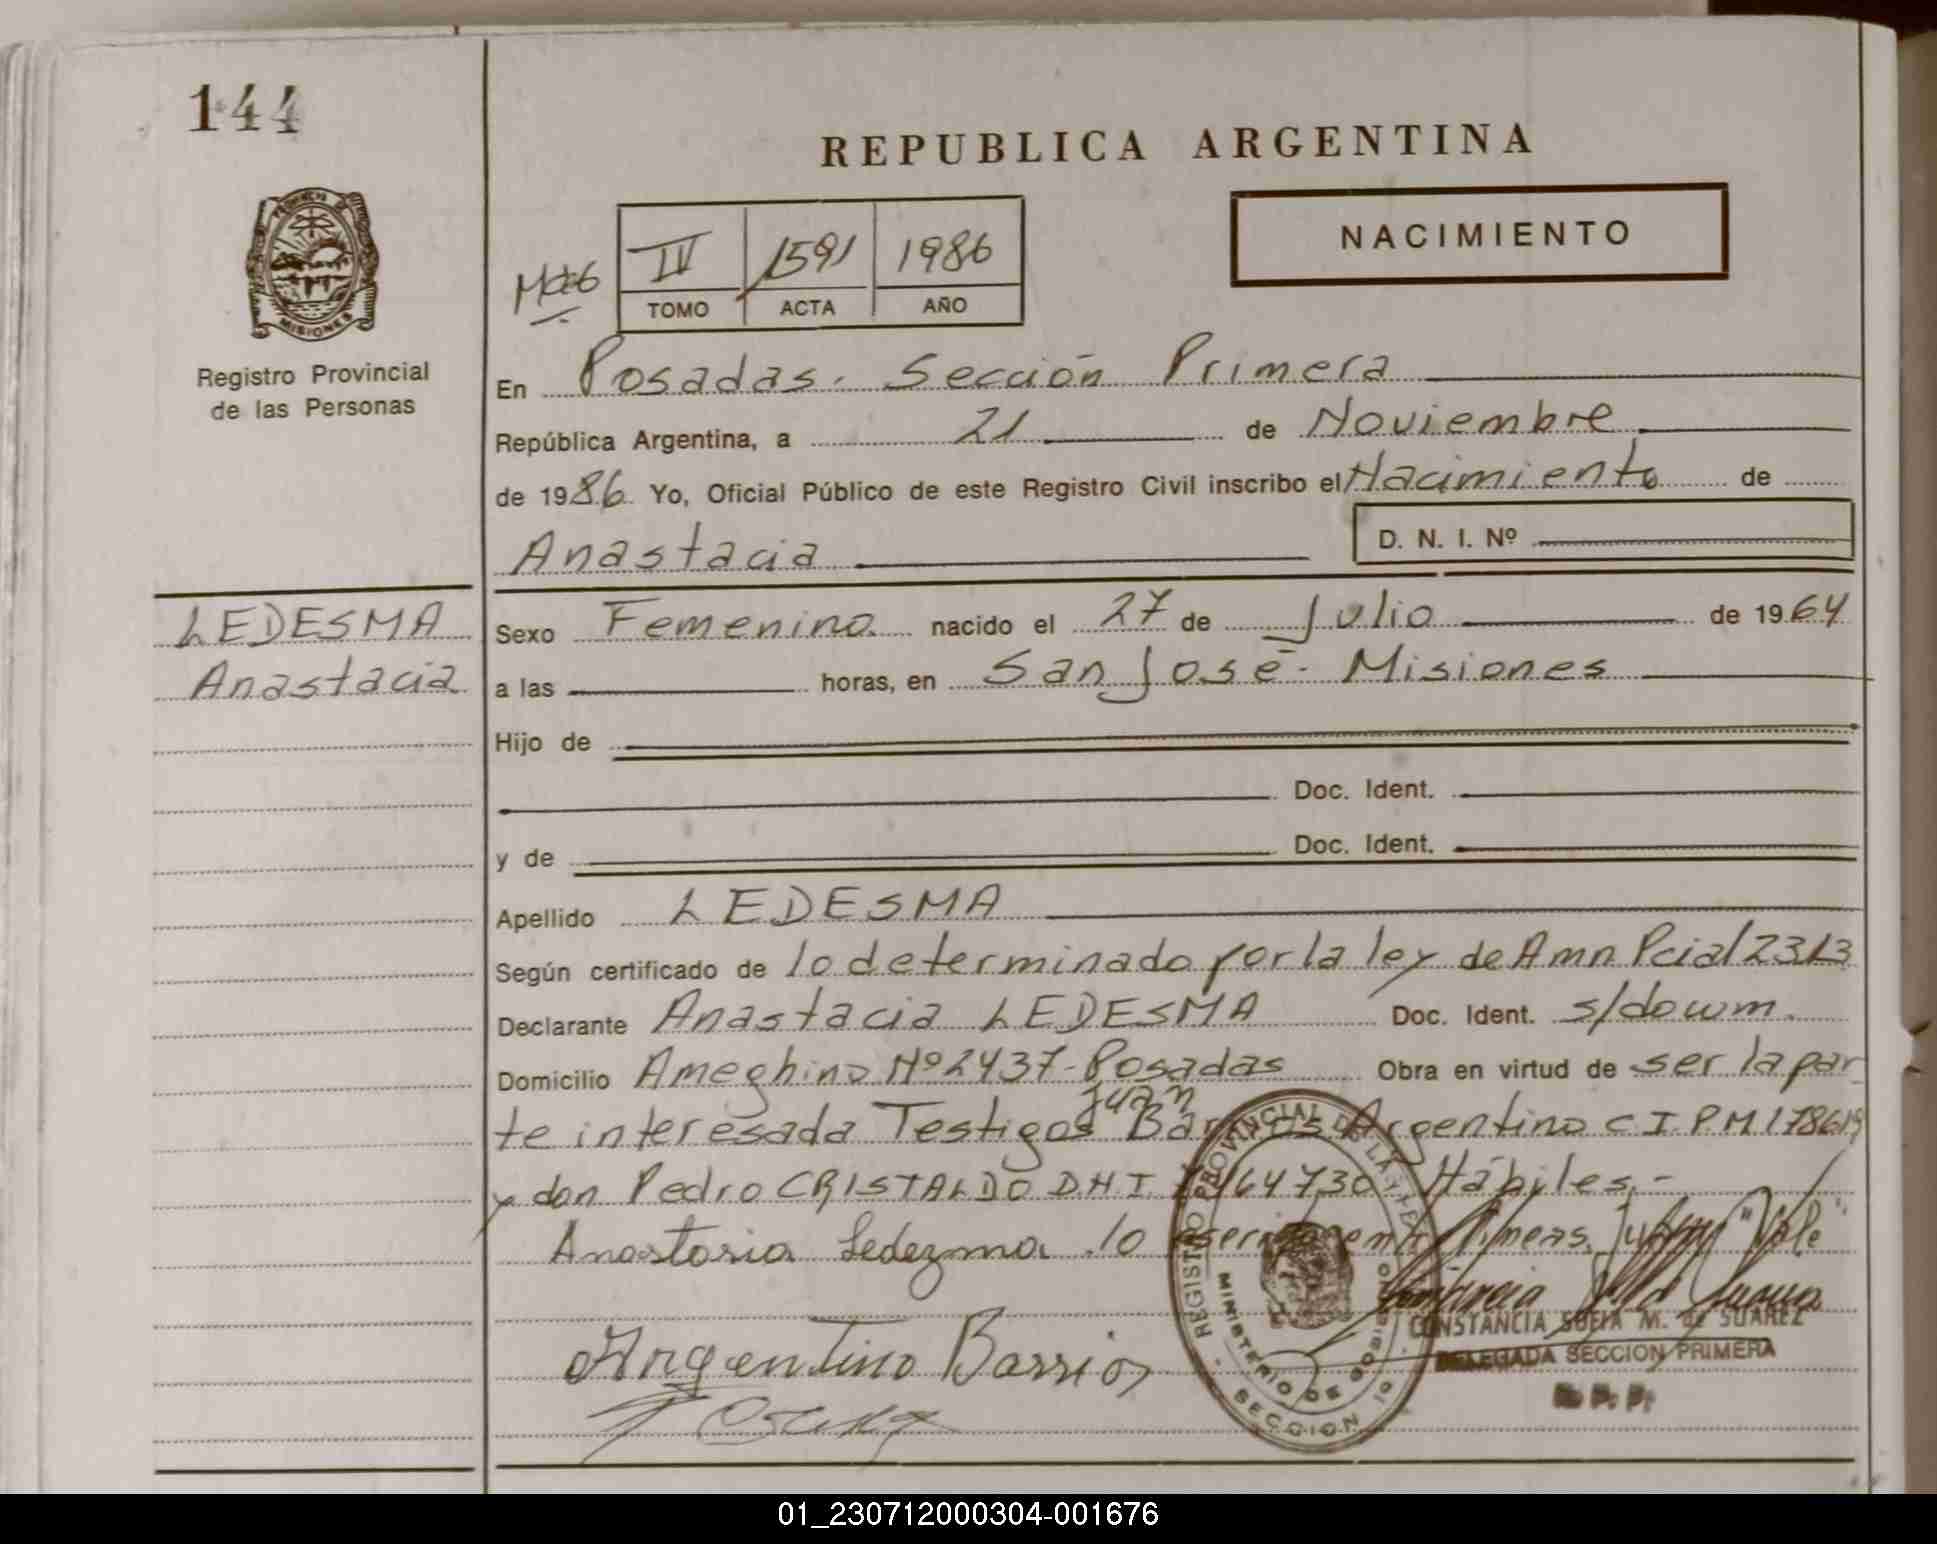 144
REPUBLICA ARGENTINA
NACIMIENTO
IV 1591 1986
TOMO ACTA AÑO
MISIONES
Registro Provincial
de las Personas
En Posadas. Sección Primera
República Argentina, a 21 de Noviembre
de 1986. Yo, Oficial Público de este Registro Civil inscribo el Nacimiento de
Anastacia D. N. I. Nº
LEDESMA
Anastacia
Sexo Femenino nacido el 27 de Julio de 1964
a las horas, en San José - Misiones
Hijo de
Doc. Ident.
y de Doc. Ident.
Apellido LEDESMA
Según certificado de lo determinado por la ley de Amn Pcial 2313
Declarante Anastacia LEDESMA Doc. Ident. s/docum.
Domicilio Ameghino Nº 2437 - Posadas Obra en virtud de ser la par
Juan
te interesada Testigos Barrios Argentino C I P M 178619
y don Pedro CRISTALDO D.N.I. 464730 Hábiles.-
Anastasia Ledezma lo entre lineas "Juan" Vale
Argentino Barrios
CONSTANCIA SOFIA M. de SUAREZ
DELEGADA SECCION PRIMERA
R. P. P.
REGISTRO PROVINCIAL DE LAS
MINISTERIO DE GOBIERNO
SECCION
01_230712000304-001676